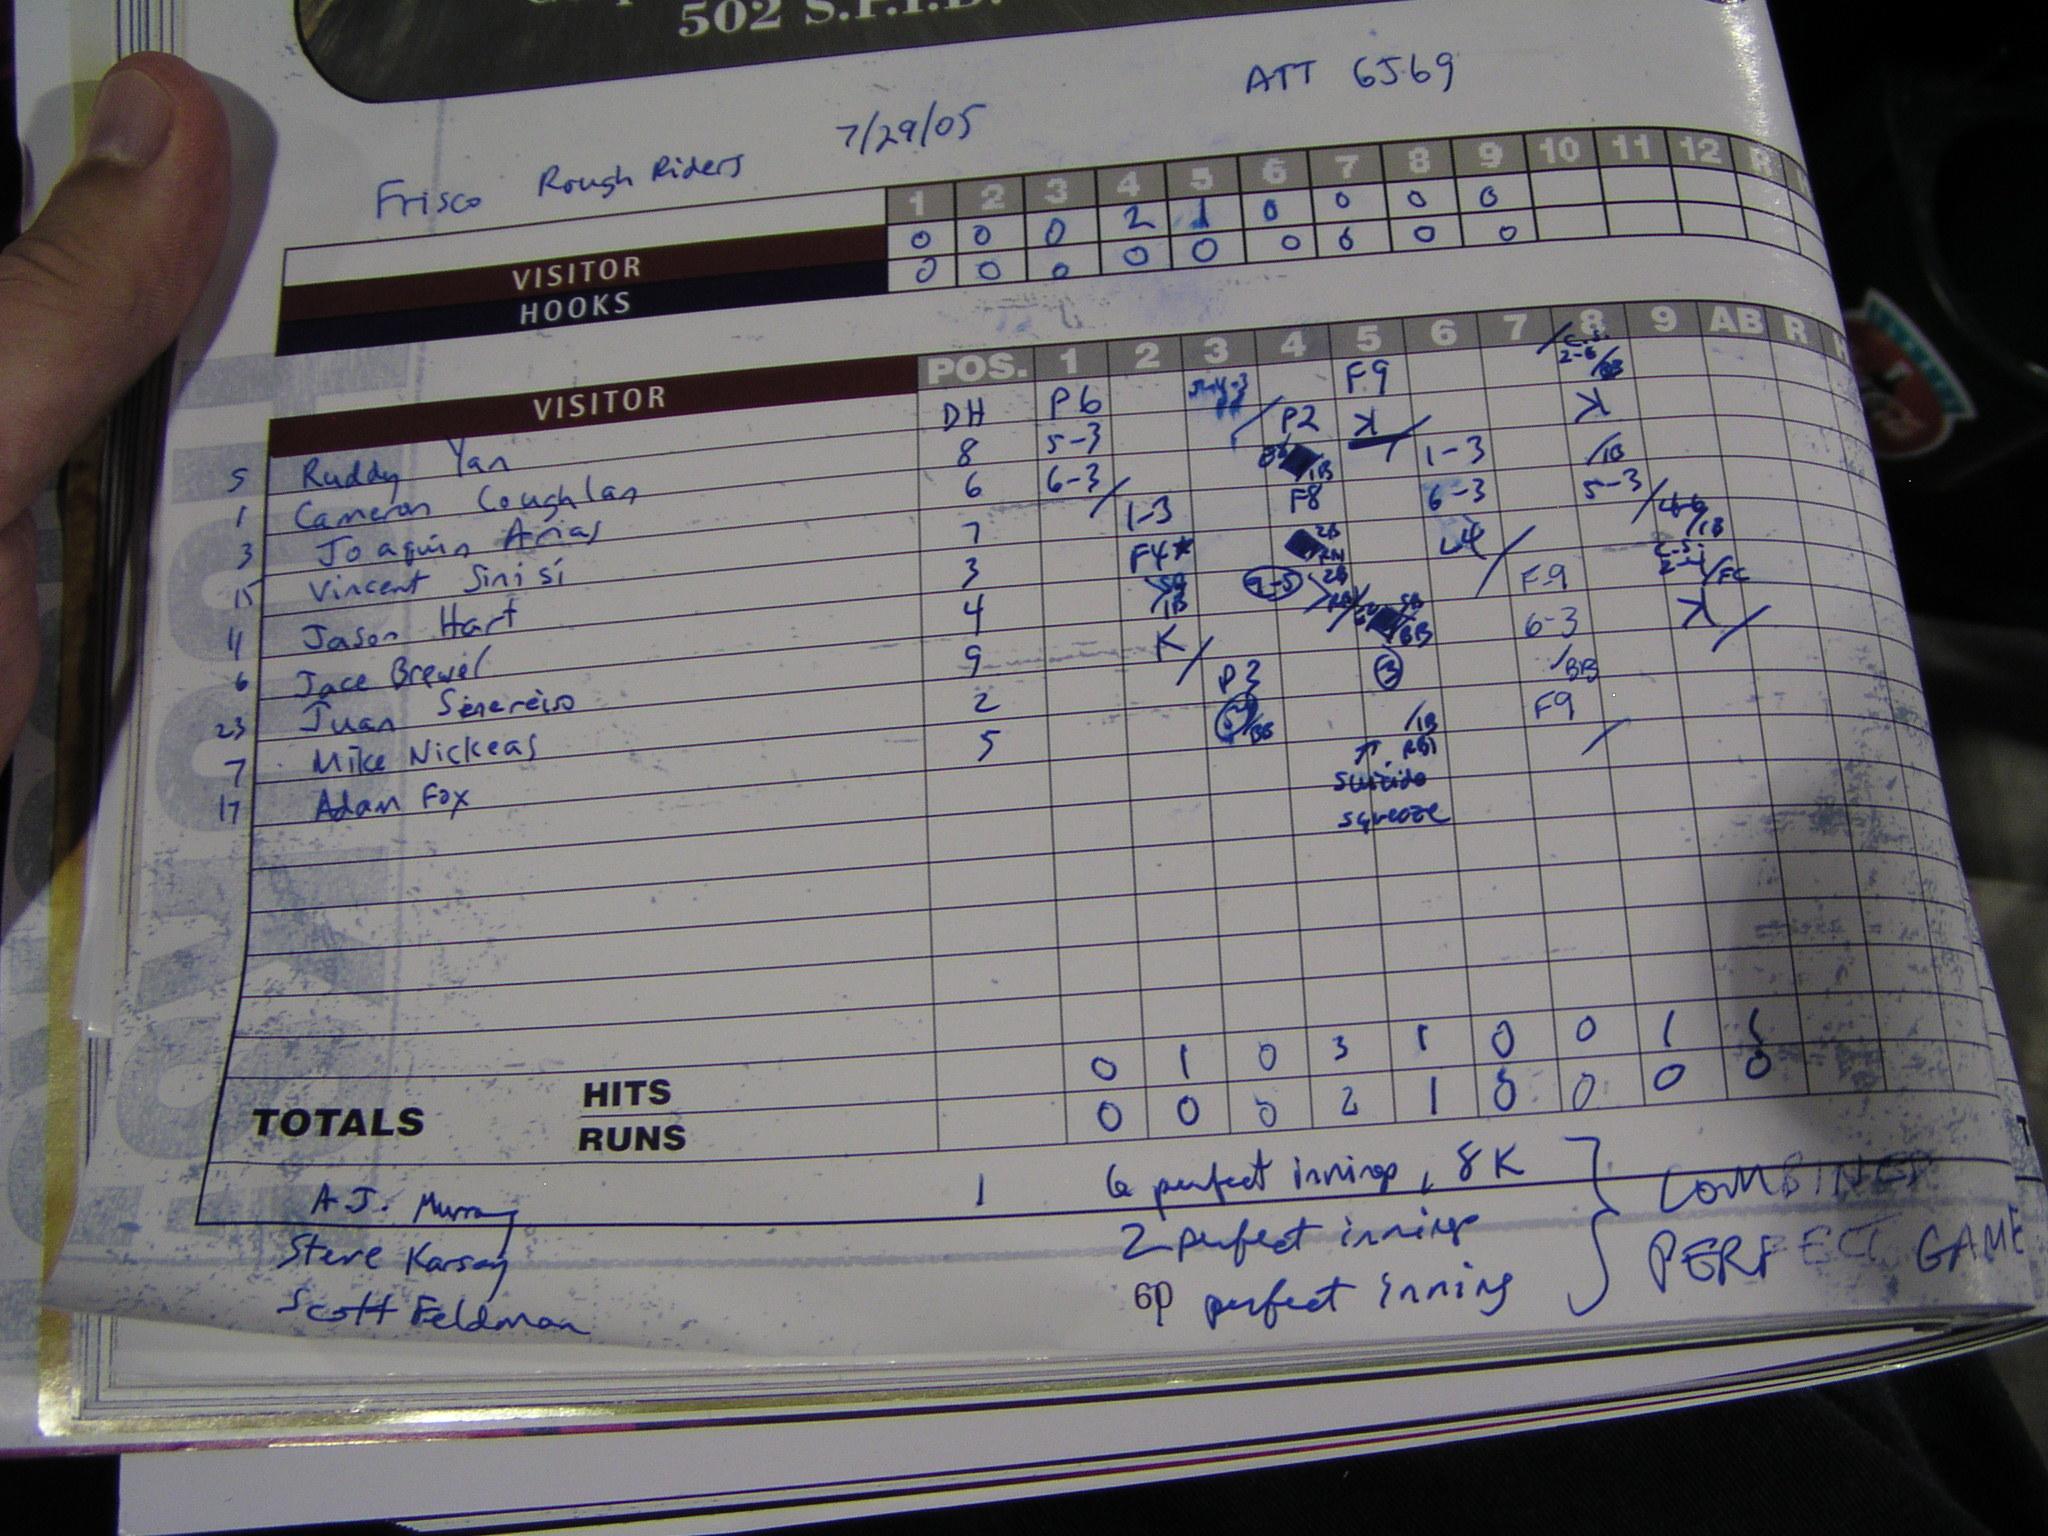 502 S.P.I.D.
ATT 6569
7/29/05
Frisco Rough Riders
1 2 3 4 5 6 7 8 9 10 11 12 R
VISITOR 0 0 0 2 1 0 0 0 0
HOOKS 0 0 0 0 0 0 0 0 0
VISITOR POS. 1 2 3 4 5 6 7 8 9 AB R H
5 Ruddy Yan DH P6 5-4-3 F9 C.S. 2-6 BB
1 Cameron Coughlan 8 5-3 P2 K K
3 Joaquin Arias 6 6-3 1B 1-3 1B
15 Vincent Sinisi 7 1-3 F8 6-3 5-3
11 Jason Hart 3 F4* 2B L4 4-6 1B
6 Jace Brewer 4 1B 9-5 2B F9 C.S. FC
23 Juan Senereiso 9 K SB BB 6-3 K
7 Mike Nickeas 2 P3 3 BB
17 Adam Fox 5 BB 1B RBI F9
suicide
squeeze
TOTALS HITS 0 1 0 3 1 0 0 1 1
RUNS 0 0 0 2 1 0 0 0 0
A.J. Murray 1 6 perfect innings, 8K
Steve Karsay 2 perfect innings
Scott Feldman 6p perfect inning
COMBINED
PERFECT GAME